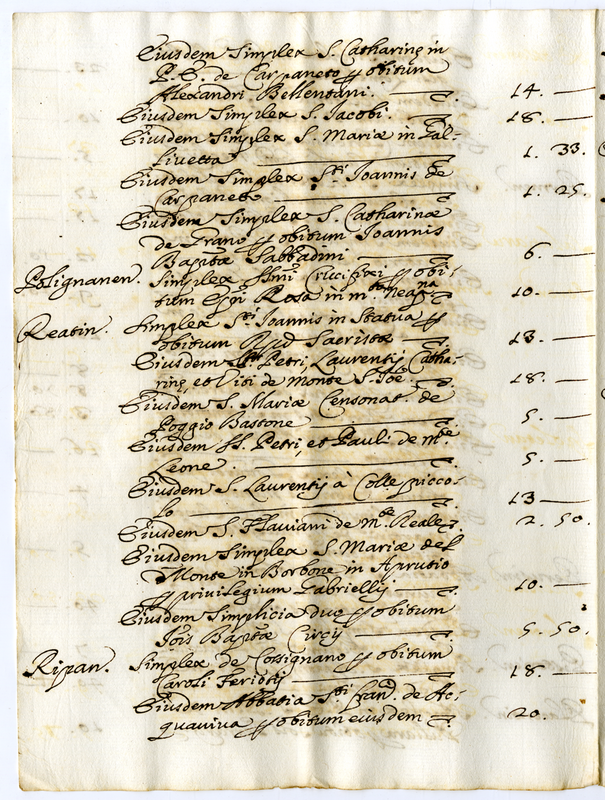 Eiusdem Simplex S. Catharinę in
P. S. de Carpaneto p obitum
Alexandri Bellentani. 14. —
Eiusdem Simplex S. Jacobi. 18. —
Eiusdem Simplex S. Mariæ in Gal-
livetta 1. 33.
Eiusdem Simplex Sti Ioannis de
Carpaneto 1. 25.
Eiusdem Simplex S. Catharinæ
de Grano p obitum Ioannis
Baptæ Sabbadini 6. —
Polignanen. Simplex SSmi Crucifixi p obi-
tum Rosa in m. 10. —
Reatin. Simplex Sti Ioannis in Statua p
obitum Sacristæ 13. —
Eiusdem Petri, Laurentij Catha-
rinę et Viti de Monte S. Joẽ 18. —
Eiusdem S. Mariæ Censonat. de
Poggio Bastone 5. —
Eiusdem SS. Petri, et Pauli de mte
Leone. 5. —
Eiusdem S. Laurentij à Colle picco-
lo 13 —
Eiusdem S. Flaviani de mte Reale 2. 50.
Eiusdem Simplex S. Mariæ del
Monte in Borbone in Aprutio
p privilegium Gabriellij 10. —
Eiusdem Simplicia duo p obitum
Jois Baptæ Circij 5. 50.
Ripan. Simplex de Cossignano p obitum
Caroli Feriotij 18. —
Eiusdem Abbatia Sti Fran. de Ac-
quaviva p obitum eiusdem 20.